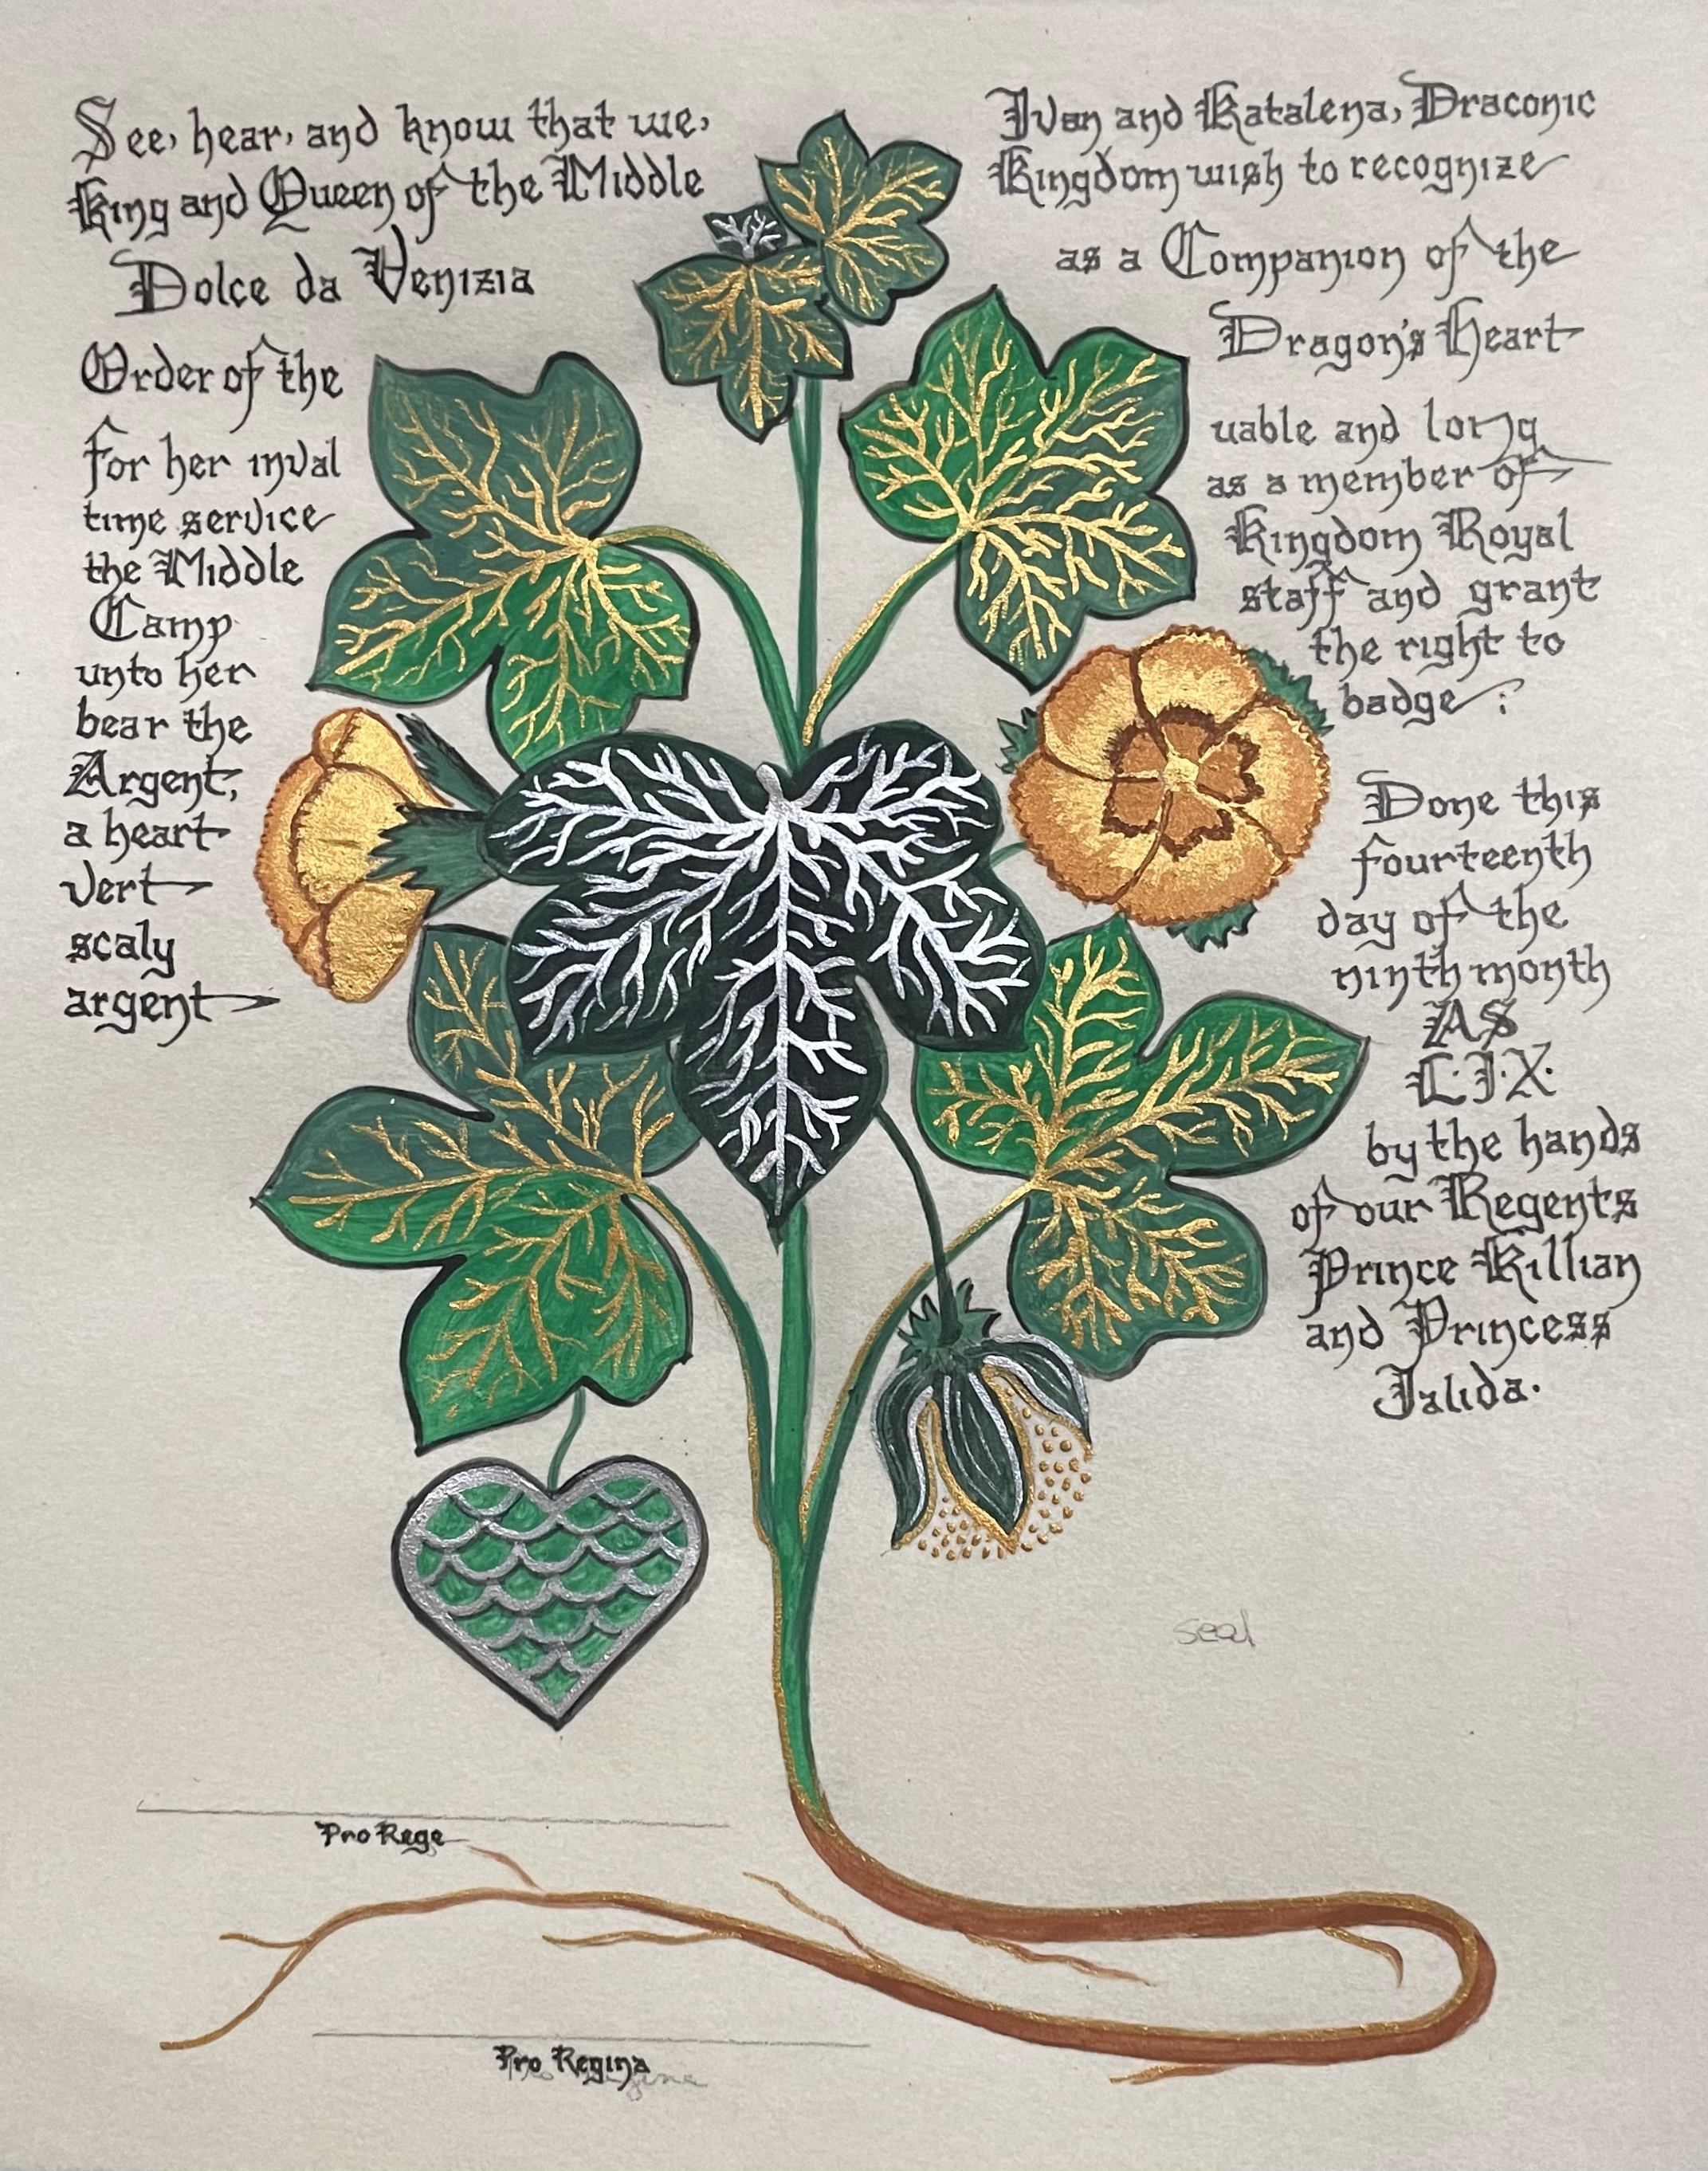 See, hear, and know that we, Ivan and Katalena, Draconic
King and Queen of the Middle Kingdom wish to recognize
Dolce da Venizia as a Companion of the
Order of the Dragon's Heart
for her inval uable and long
time service as a member of
the Middle Kingdom Royal
Camp staff and grant
unto her the right to
bear the badge :
Argent,
a heart
vert
scaly
argent
Done this
fourteenth
day of the
ninth month
AS
L·I·X·
by the hands
of our Regents
Prince Killian
and Princess
Jalida.
seal
Pro Rege
Pro Regina